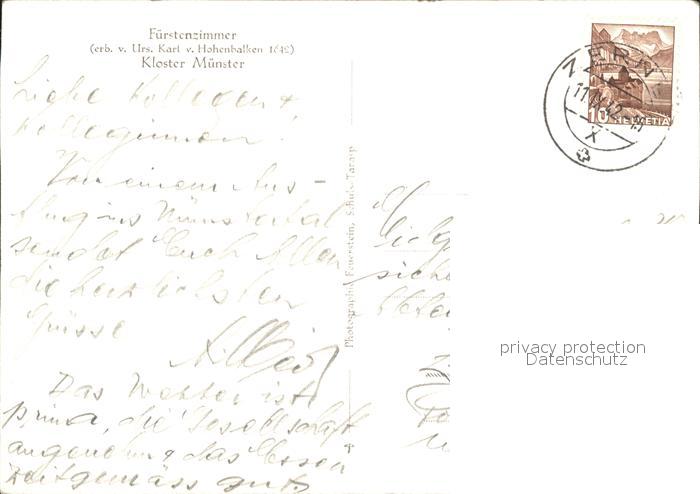 Fürstenzimmer
(erb. v. Urs. Karl v. Hohenbalken 1642)
Kloster Münster
Liebe Kollegen &
Kolleginnen!
Von einem Aus-
flug ins Münstertal
sendet Euch Allen
die herzlichsten
Grüsse
Das Wetter ist
prima, die Gesellschaft
angenehm & das Essen
zeitgemäss gut.
Photographie Feuerstein, Schuls-Tarasp
ZERN
11.IX.42
X
10 HELVETIA
privacy protection
Datenschutz